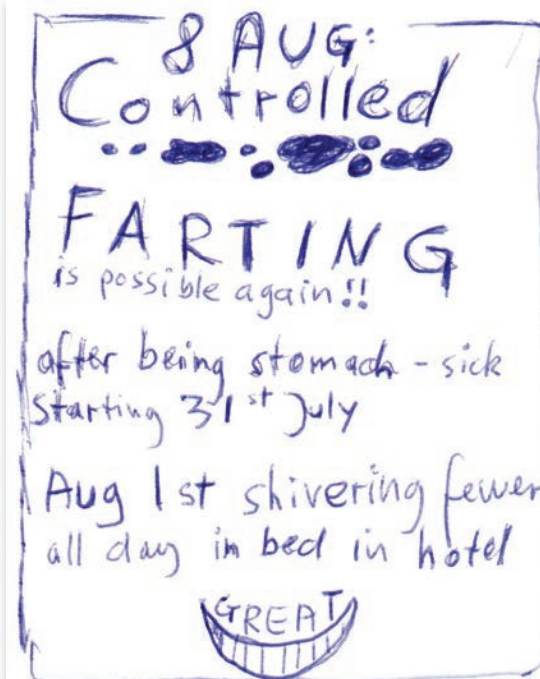 8 AUG:
Controlled
FARTING
is possible again!!
after being stomach-sick
Starting 31st July
Aug 1st shivering fewer
all day in bed in hotel
GREAT